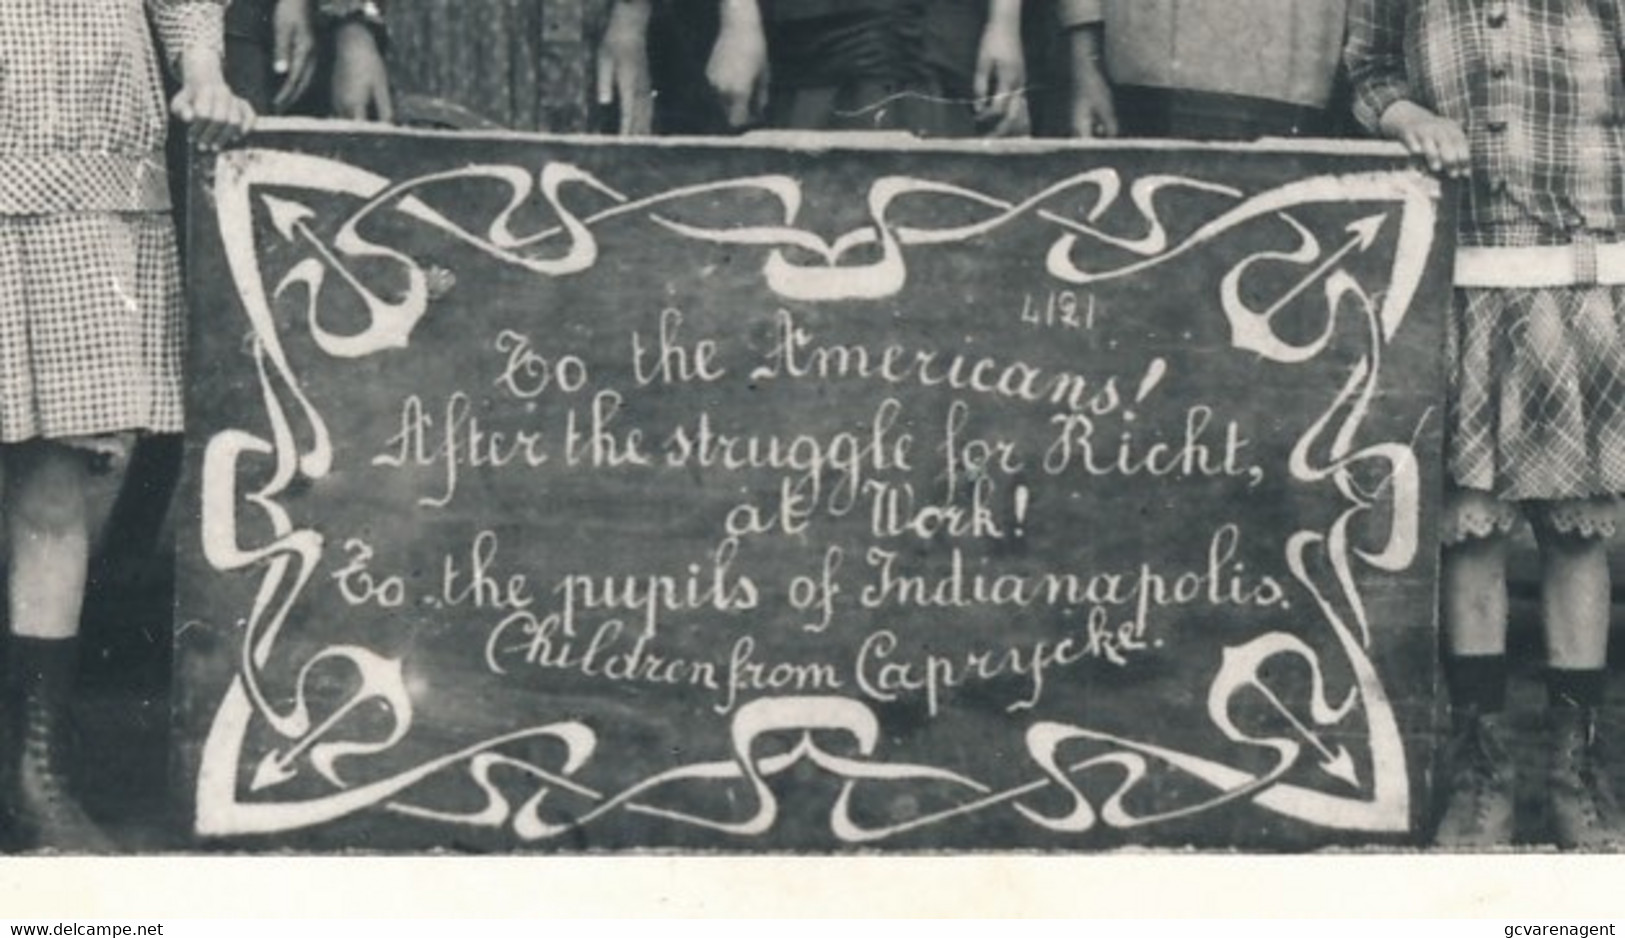 4121
To the Americans!
After the struggle for Richt,
at Work!
To the pupils of Indianapolis.
Children from Caprycke.
www.delcampe.net
gcvarenagent